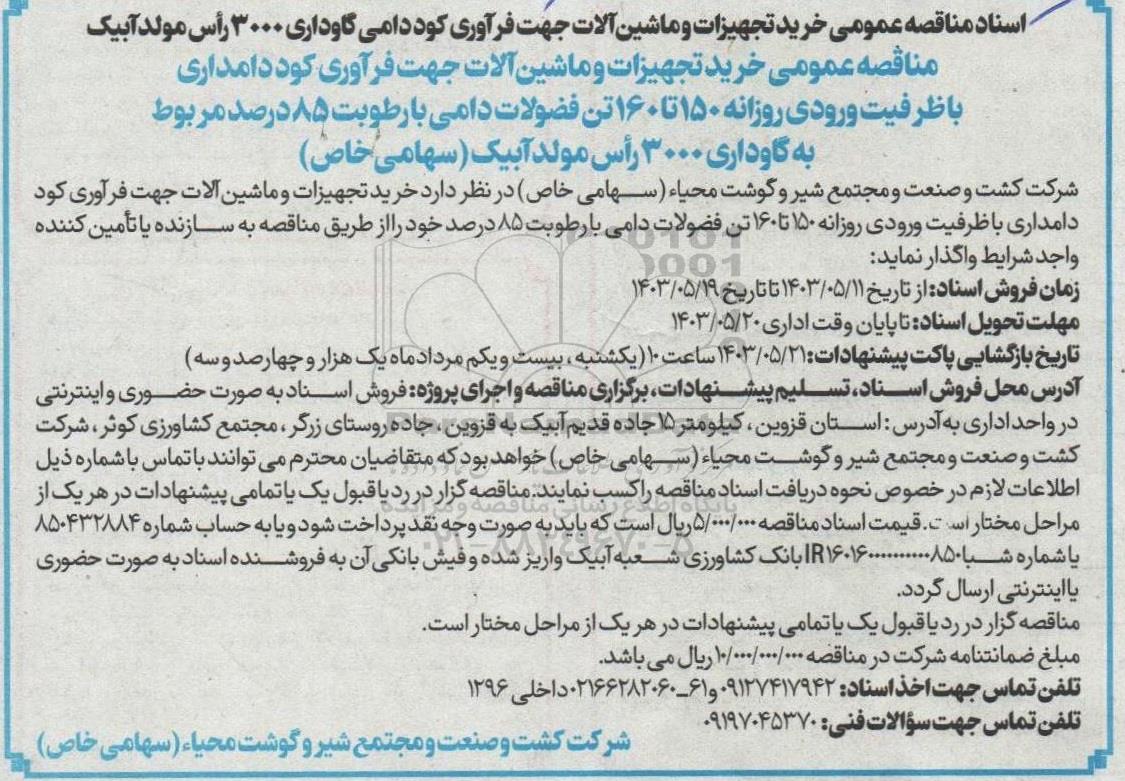 اسناد مناقصه عمومی خرید تجهیزات و ماشین‌آلات جهت فرآوری کود دامی گاوداری ۳۰۰۰ رأس مولد آبیک
مناقصه عمومی خرید تجهیزات و ماشین‌آلات جهت فرآوری کود دامداری
با ظرفیت ورودی روزانه ۱۵۰ تا ۱۶۰ تن فضولات دامی با رطوبت ۸۵ درصد مربوط
به گاوداری ۳۰۰۰ رأس مولد آبیک (سهامی خاص)
شرکت کشت و صنعت و مجتمع شیر و گوشت محیاء (سهامی خاص) در نظر دارد خرید تجهیزات و ماشین‌آلات جهت فرآوری کود
دامداری با ظرفیت ورودی روزانه ۱۵۰ تا ۱۶۰ تن فضولات دامی با رطوبت ۸۵ درصد خود را از طریق مناقصه به سازنده یا تأمین کننده
واجد شرایط واگذار نماید:
زمان فروش اسناد: از تاریخ ۱۴۰۳/۰۵/۱۱ تا تاریخ ۱۴۰۳/۰۵/۱۹
مهلت تحویل اسناد: تا پایان وقت اداری ۱۴۰۳/۰۵/۲۰
تاریخ بازگشایی پاکت پیشنهادات: ۱۴۰۳/۰۵/۲۱ ساعت ۱۰ (یکشنبه، بیست و یکم مردادماه یک هزار و چهارصد و سه)
آدرس محل فروش اسناد، تسلیم پیشنهادات، برگزاری مناقصه و اجرای پروژه: فروش اسناد به صورت حضوری و اینترنتی
در واحد اداری به آدرس: استان قزوین، کیلومتر ۱۵ جاده قدیم آبیک به قزوین، جاده روستای زرگر، مجتمع کشاورزی کوثر، شرکت
کشت و صنعت و مجتمع شیر و گوشت محیاء (سهامی خاص) خواهد بود که متقاضیان محترم می توانند با تماس با شماره ذیل
اطلاعات لازم در خصوص نحوه دریافت اسناد مناقصه را کسب نمایند. مناقصه گزار در رد یا قبول یک یا تمامی پیشنهادات در هر یک از
مراحل مختار است. قیمت اسناد مناقصه ۵/۰۰۰/۰۰۰ ریال است که باید به صورت وجه نقد پرداخت شود و یا به حساب شماره ۸۵۰۴۳۲۸۸۴
یا شماره شبا بانک کشاورزی شعبه آبیک واریز شده و فیش بانکی آن به فروشنده اسناد به صورت حضوری
یا اینترنتی ارسال گردد.
مناقصه گزار در رد یا قبول یک یا تمامی پیشنهادات در هر یک از مراحل مختار است.
مبلغ ضمانتنامه شرکت در مناقصه ۱۰/۰۰۰/۰۰۰/۰۰۰ ریال می باشد.
تلفن تماس جهت اخذ اسناد: ۰۹۱۲۷۴۱۷۹۴۲ و ۶۱-۰۲۱۶۶۲۸۲۰۶۰ داخلی ۱۲۹۶
تلفن تماس جهت سؤالات فنی: ۰۹۱۹۷۰۴۵۳۷۰
شرکت کشت و صنعت و مجتمع شیر و گوشت محیاء (سهامی خاص)